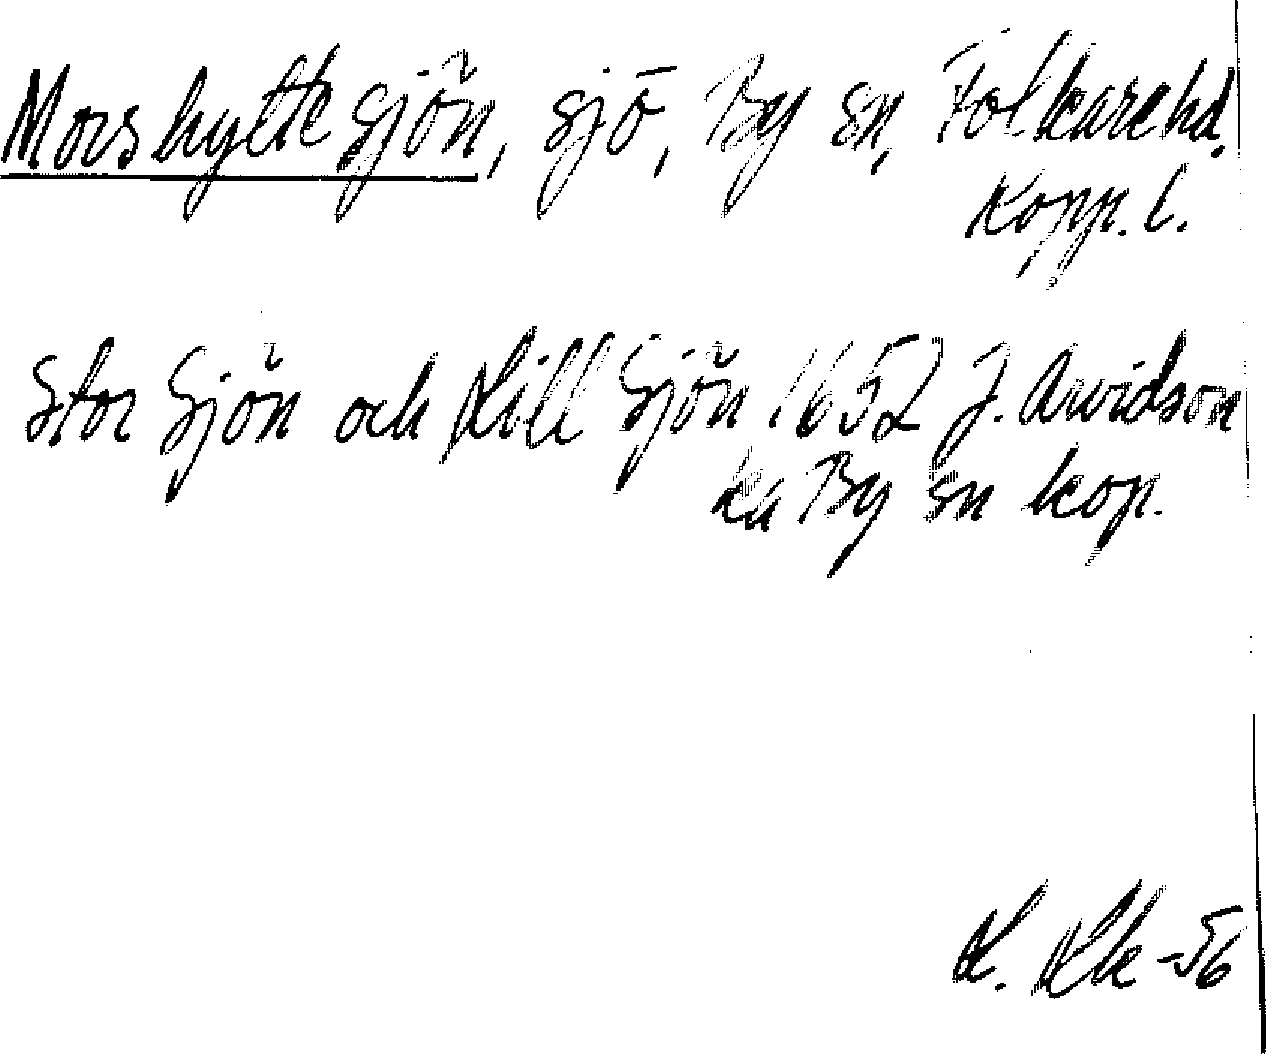 Morshyttesjön, sjö, By sn, Folkarehd.
Kopp. l.
Stor Sjön och Lill Sjön 1652 J. Arvidson
ka By sn kop.
L. -56